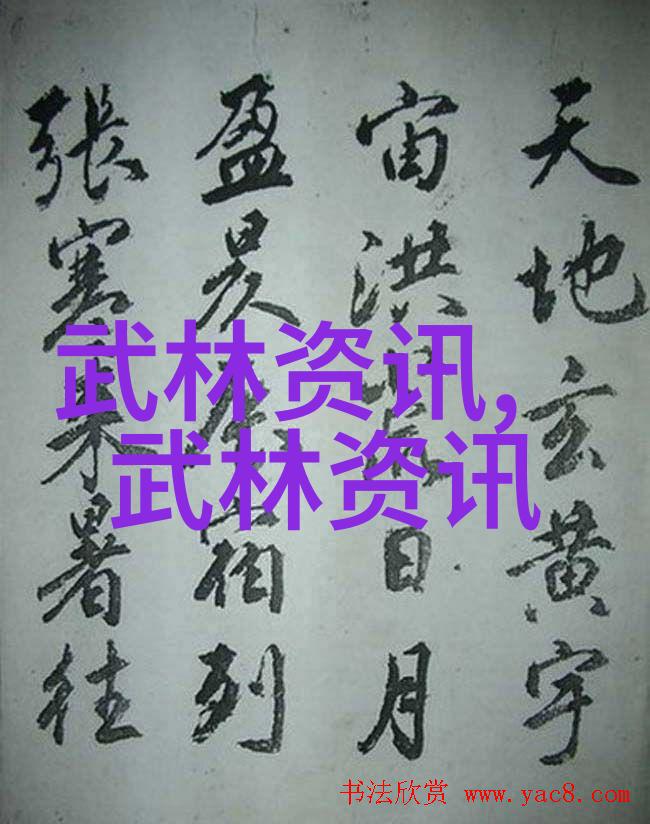 天地玄黄宇
宙洪日月
盈昃宿列
張寒来暑往
武林资讯,
武林资讯
书法欣赏 www.yac8.com